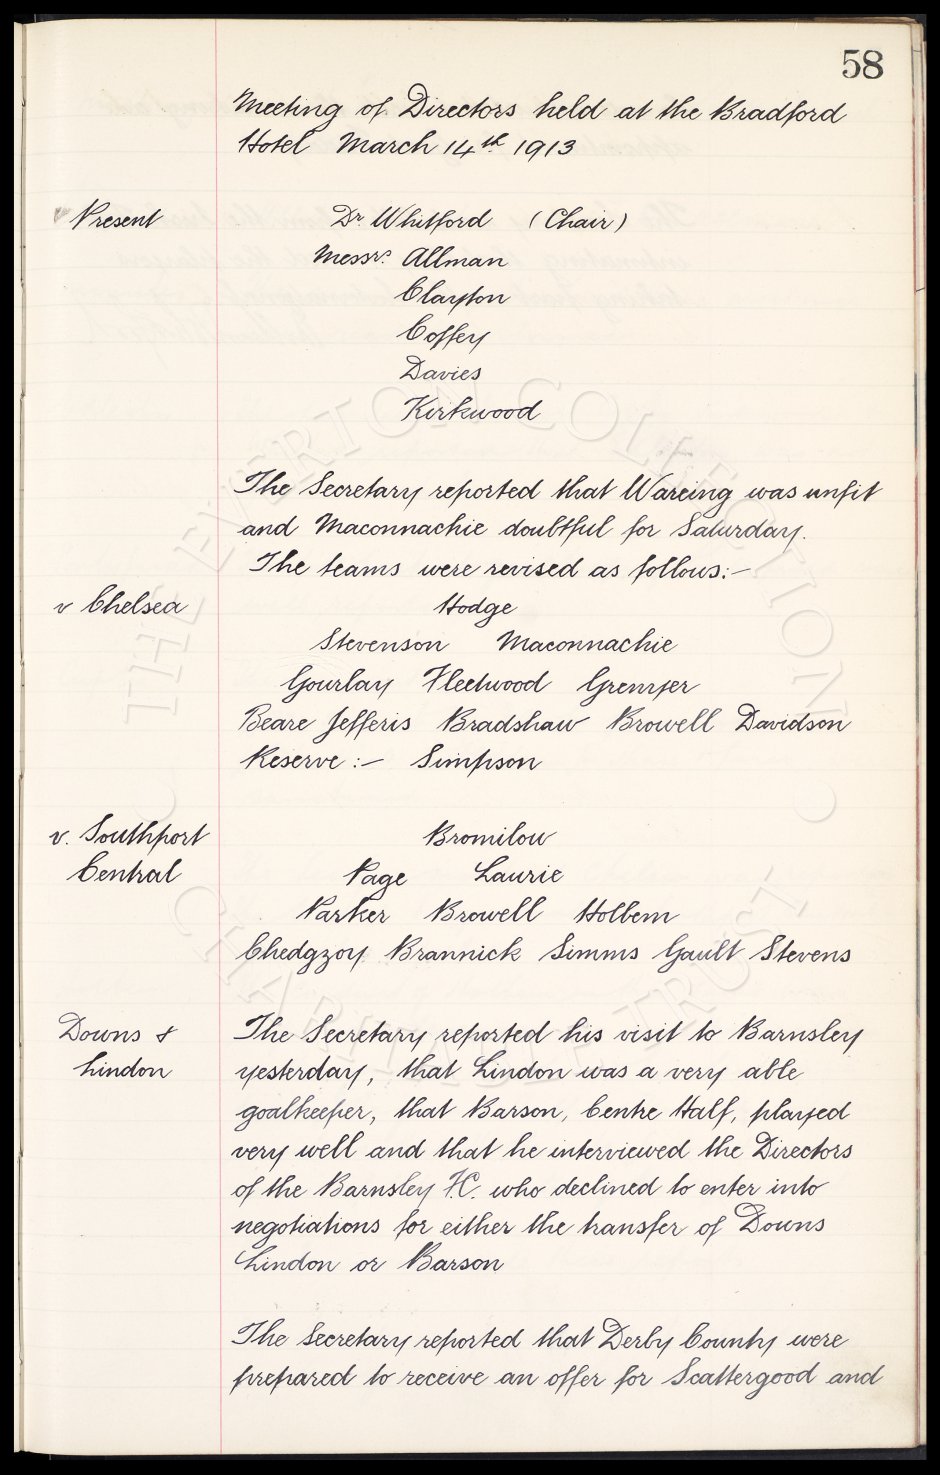 58
Meeting of Directors held at the Bradford
Hotel March 14th 1913
Present
Dr. Whitford (Chair)
Messrs. Allman
Clayton
Coffey
Davies
Kirkwood
The Secretary reported that Wareing was unfit
and Maconnachie doubtful for Saturday.
The teams were revised as follows:-
v Chelsea
Hodge
Stevenson Maconnachie
Gourlay Fleetwood Grenyer
Beare Jefferis Bradshaw Browell Davidson
Reserve :- Simpson
v. Southport
Central
Bromilow
Page Laurie
Parker Browell Holbem
Chedgzoy Brannick Simms Gault Stevens
Downs &
Lindon
The Secretary reported his visit to Barnsley
yesterday, that Lindon was a very able
goalkeeper, that Barson, Centre Half, played
very well and that he interviewed the Directors
of the Barnsley F.C. who declined to enter into
negotiations for either the transfer of Downs
Lindon or Barson
The Secretary reported that Derby County were
prepared to receive an offer for Scattergood and
THE EVERTON COLLECTION
CHARITABLE TRUST